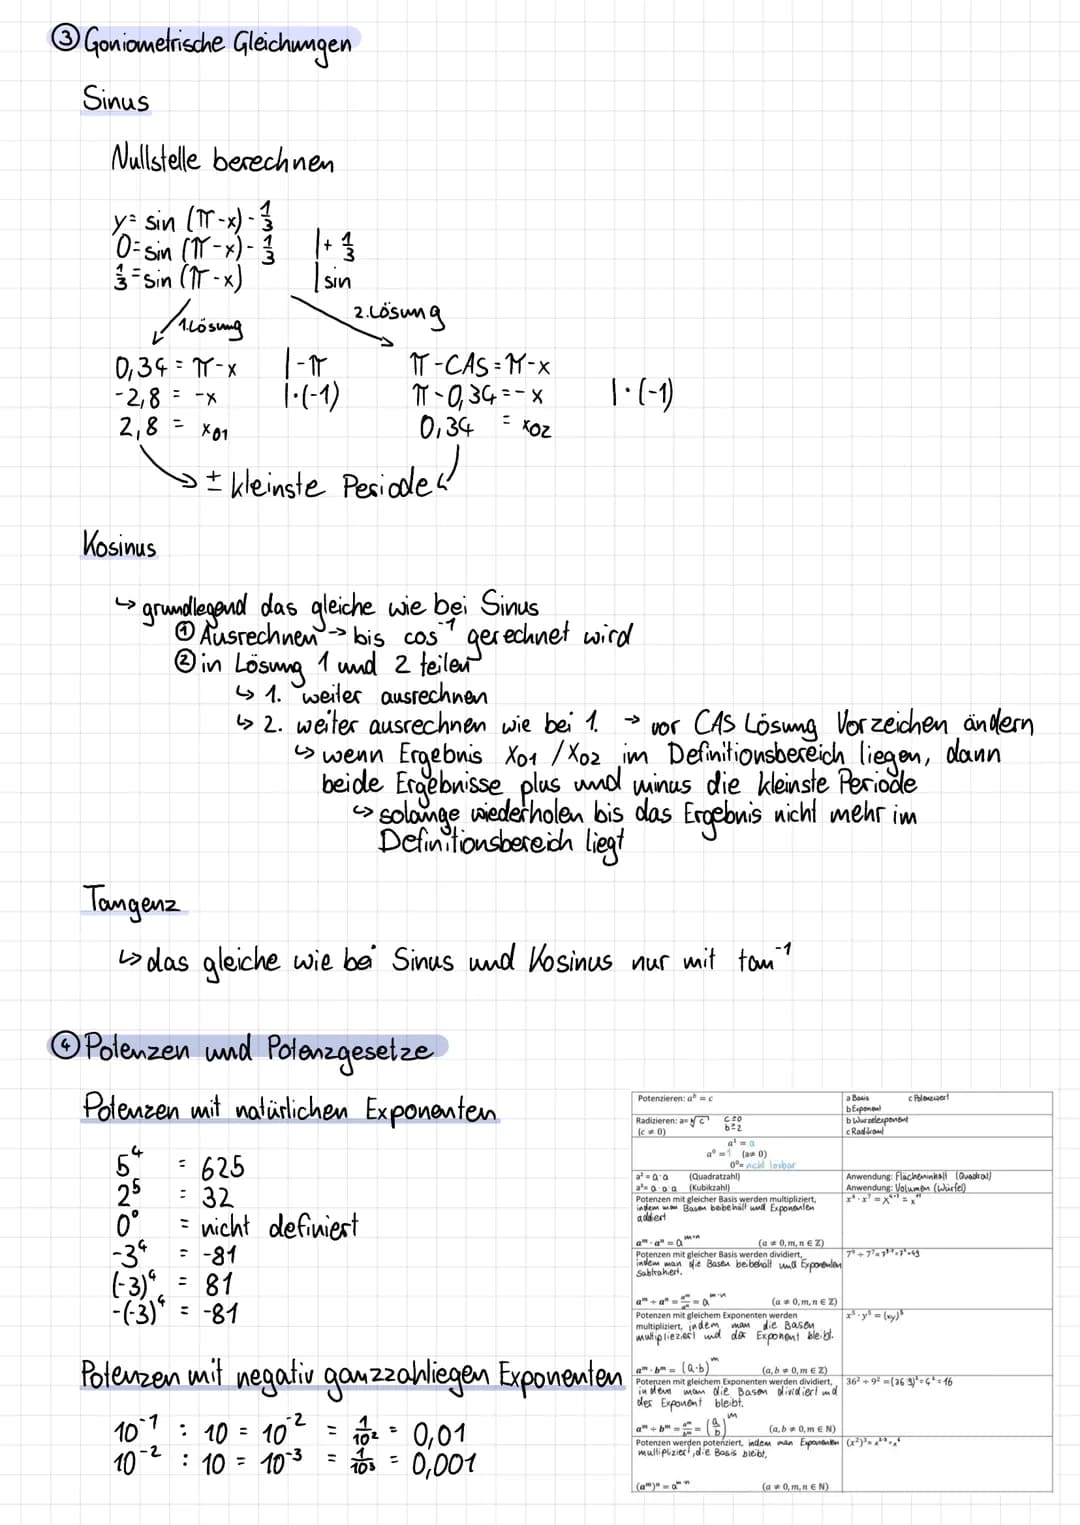 ③ Goniometrische Gleichungen
Sinus
Nullstelle berechnen
y = sin (π-x) - 1/3
0 = sin (π-x) - 1/3 | + 1/3
1/3 = sin (π-x) | sin
1.Lösung
2.Lösung
0,34 = π-x | -π
-2,8 = -x | ·(-1)
2,8 = x01
π - CAS = π-x
π - 0,34 = -x | ·(-1)
0,34 = x02
± kleinste Periode
Kosinus
↳ grundlegend das gleiche wie bei Sinus
① Ausrechnen → bis cos⁻¹ gerechnet wird
② in Lösung 1 und 2 teilen
↳ 1. weiter ausrechnen
↳ 2. weiter ausrechnen wie bei 1. → vor CAS Lösung Vorzeichen ändern
↳ wenn Ergebnis x01 / x02 im Definitionsbereich liegen, dann
beide Ergebnisse plus und minus die kleinste Periode
↳ solange wiederholen bis das Ergebnis nicht mehr im
Definitionsbereich liegt
Tangenz
↳ das gleiche wie bei Sinus und Kosinus nur mit tan⁻¹
④ Potenzen und Potenzgesetze
Potenzen mit natürlichen Exponenten
5⁴ = 625
2⁵ = 32
0⁰ = nicht definiert
-3⁴ = -81
(-3)⁴ = 81
-(-3)⁴ = -81
Potenzen mit negativ ganzzahliegen Exponenten
10⁻¹ : 10 = 10⁻² = 1/10² = 0,01
10⁻² : 10 = 10⁻³ = 1/10³ = 0,001
Potenzieren: aᵇ = c
a Basis c Potenzwert
b Exponent
Radizieren: a = ᵇ√c c≥0
(c ≠ 0) b≥2
b Wurzelexponent
c Radikant
a¹ = a
a⁰ = 1 (a≠ 0)
0⁰= nicht lösbar
a² = a·a (Quadratzahl)
Anwendung: Flächeninhalt (Quadrat)
a³= a·a·a (Kubikzahl)
Anwendung: Volumen (Würfel)
Potenzen mit gleicher Basis werden multipliziert,
indem man Basen beibehält und Exponenten
addiert
x⁴ · x⁷ = x⁴⁺⁷ = x¹¹
aᵐ · aⁿ = aᵐ⁺ⁿ (a ≠ 0, m, n ∈ Z)
Potenzen mit gleicher Basis werden dividiert,
indem man die Basen beibehält und Exponenten
subtrahiert.
aᵐ ÷ aⁿ = aᵐ/aⁿ = aᵐ⁻ⁿ (a ≠ 0, m, n ∈ Z)
Potenzen mit gleichem Exponenten werden
multipliziert, indem man die Basen
multipliziert und der Exponent bleibt.
x⁵ · y⁵ = (xy)⁵
aᵐ · bᵐ = (a·b)ᵐ (a, b ≠ 0, m ∈ Z)
Potenzen mit gleichem Exponenten werden dividiert,
indem man die Basen dividiert und
der Exponent bleibt.
36² ÷ 9² = (36:9)² = 4² = 16
aᵐ ÷ bᵐ = aᵐ/bᵐ = (a/b)ᵐ (a, b ≠ 0, m ∈ N)
Potenzen werden potenziert, indem man Exponenten
multipliziert, die Basis bleibt,
(aᵐ)ⁿ = aᵐ·ⁿ (a ≠ 0, m, n ∈ N)